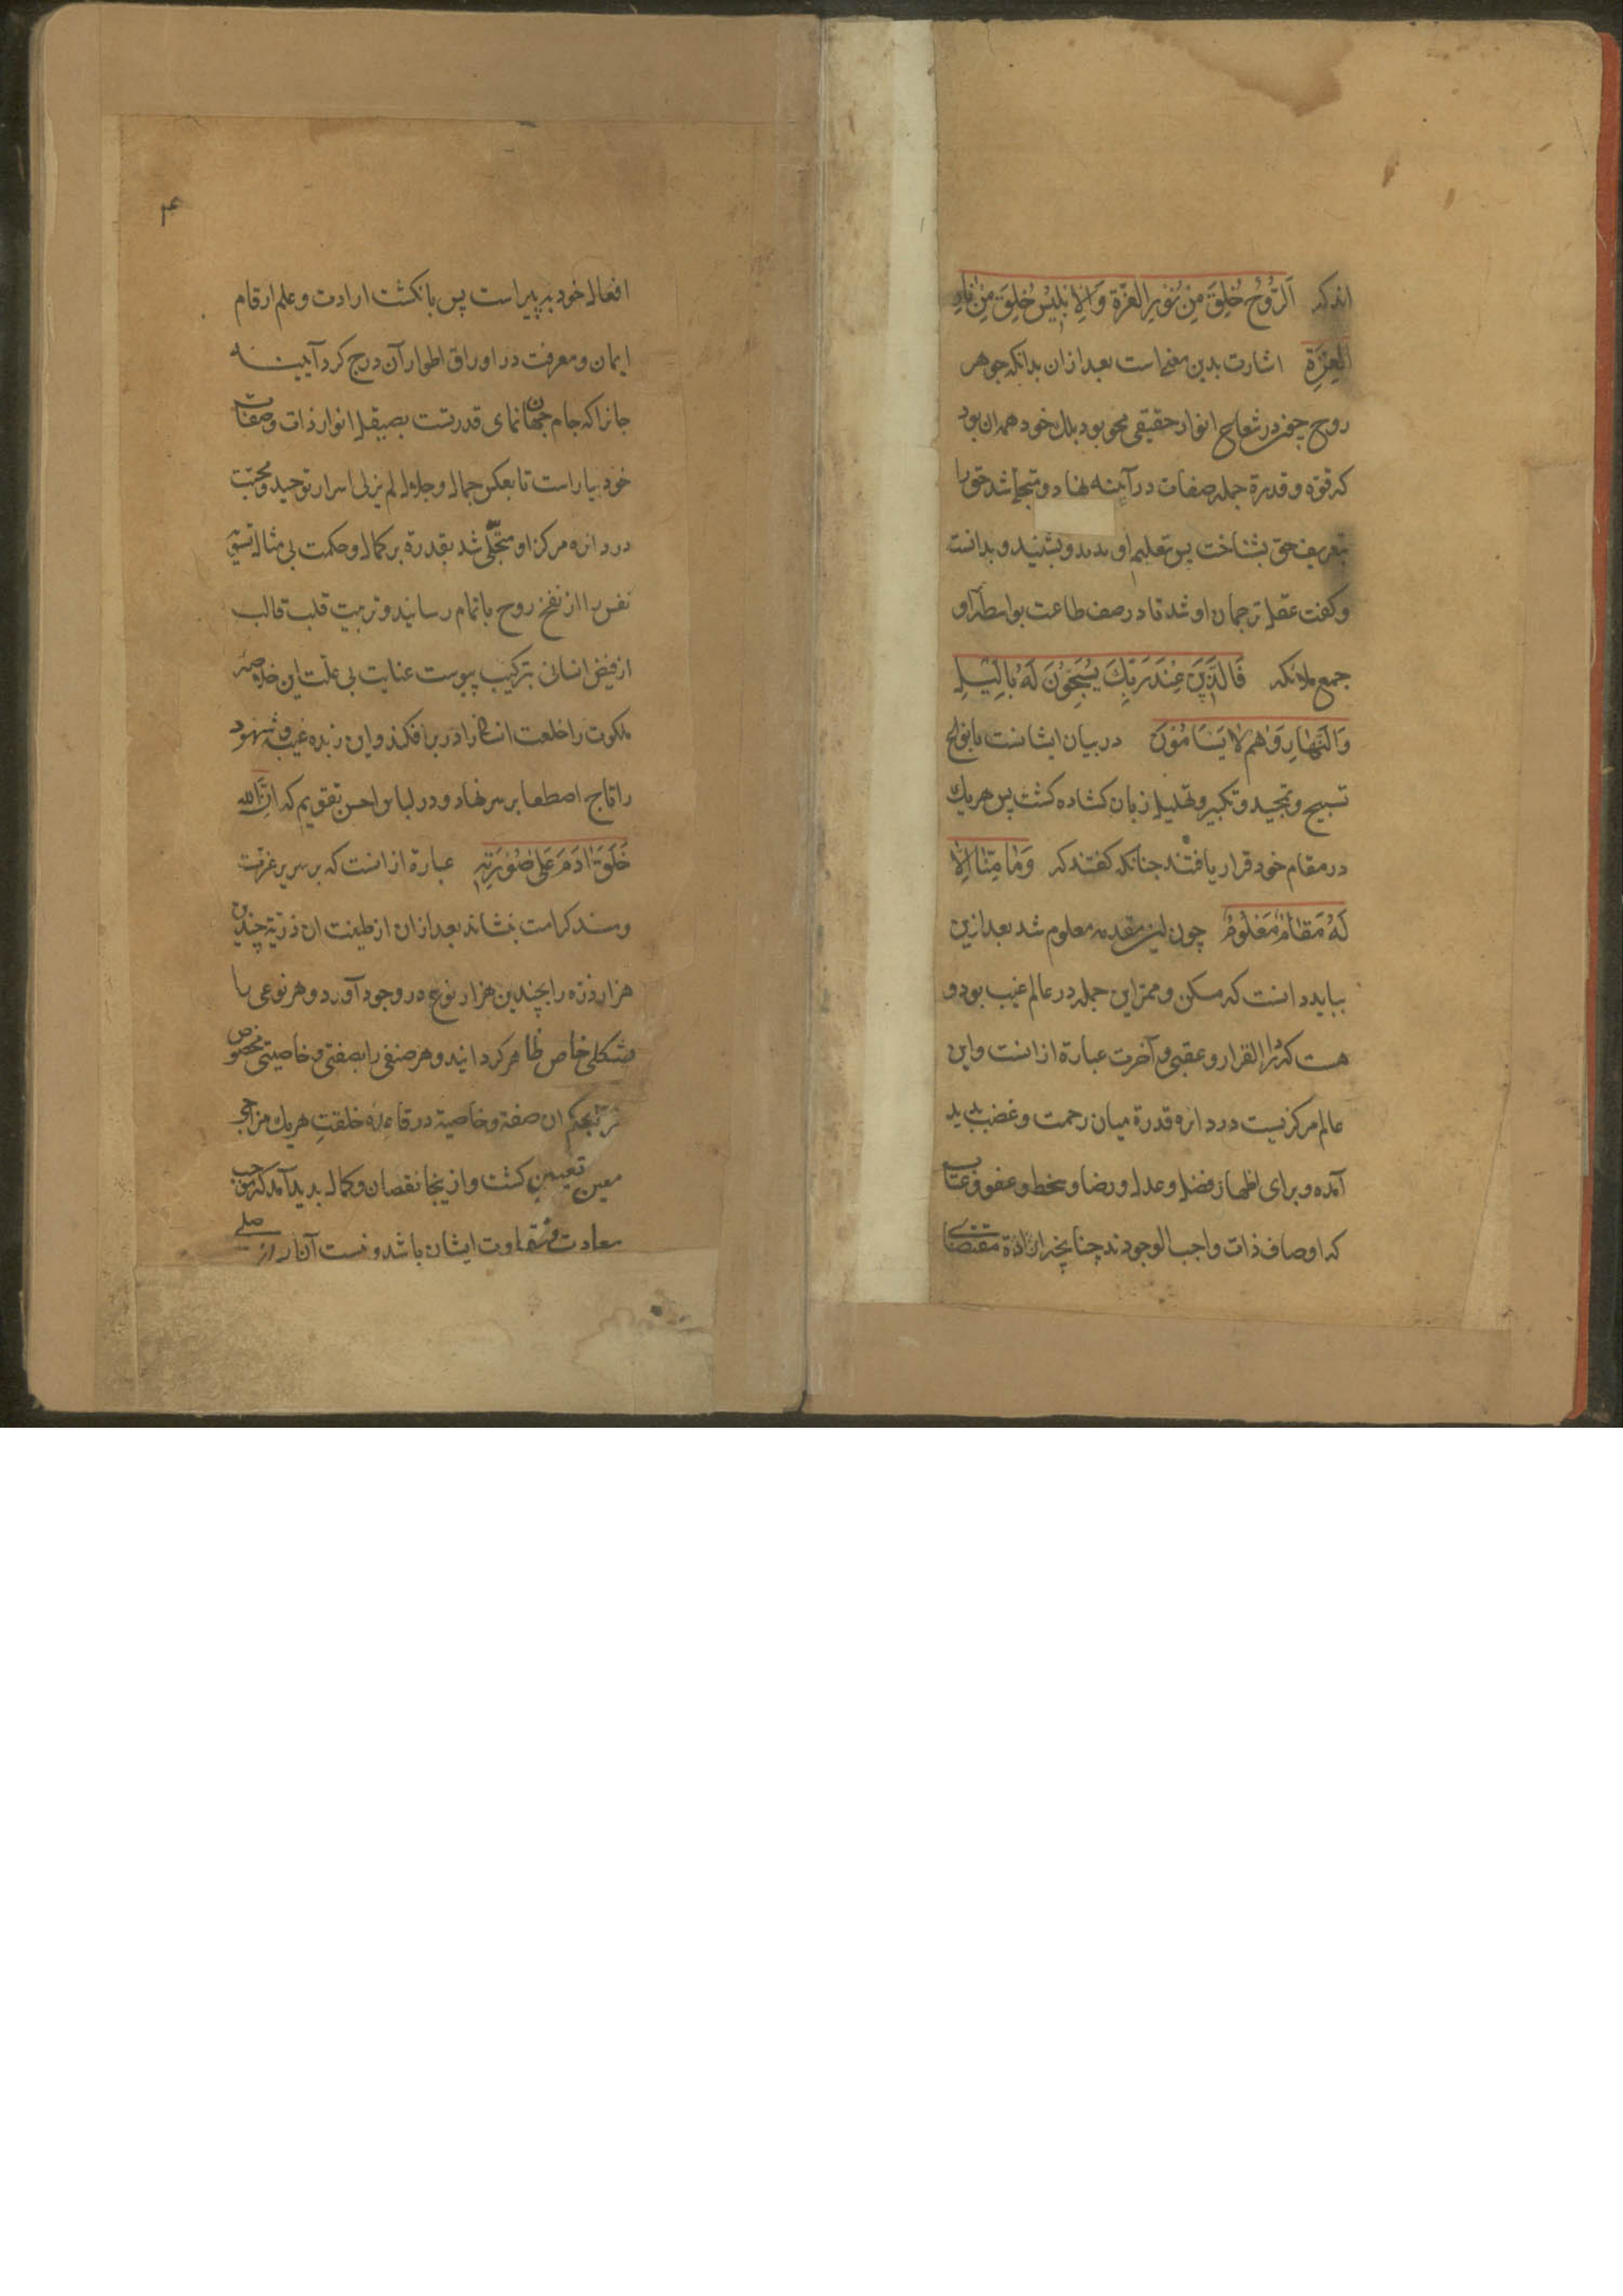 اند که اَلرُّوحُ خُلِقَ مِنْ نُورِ الْعِزَّةِ وَالاِبْلِیسُ خُلِقَ مِنْ نَارِ
الْعِزَّةِ اشارت بدین معنی است بعد ازان بدانکه جوهر
روح چون در شعاع انوار حقیقی محو بود بلک خود همه ان بود
که قوة و قدرة جمله صفات در آینه نهاد و متجلّی شد حق را
بتعریف حق بشناخت پس بتعلیم او بدید و بشنید و بدانست
و کفت عقل ترجمان او شد تا در صف طاعت بواسطهٔ او
جمع ملائکه فَالَّذِینَ عِنْدَ رَبِّکَ یُسَبِّحُونَ لَهُ بِاللَّیْلِ
وَالنَّهَارِ وَهُمْ لَا یَسْأَمُونَ در بیان ایشانست بانواع
تسبیح و تمجید و تکبیر و تهلیل زبان کشاده کشت پس هریک
در مقام خود قرار یافتند جنانکه کفتند که وَمَا مِنَّا اِلَّا
لَهُ مَقَامٌ مَعْلُومٌ چون این مقدمه معلوم شد بعد ازین
بباید دانست که مسکن و ممر این جمله در عالم غیب بود و
هست که دار القرار و عقبی و آخرت عبارة ازانست و این
عالم مرکزیست در دائره قدرة میان رحمت و غضب پدید
آمده و برای اظهار فضل و عدل و رضا و سخط و عفو و عتاب
که اوصاف ذات واجب الوجودند چنانچه ارادة مقتضای
۴
افعال خود بد پیراست پس بانکشت ارادت و علم ارقام
ایمان و معرفت در اوراق اطوار آن درج کرد آیینه
جانرا که جام جهان نمای قدرتست بصیقل انوار ذات و صفات
خود بیاراست تا بعکس جمال و جلال لم یزلی اسرار توحید و محبت
در دائره مرکز او متجلّی شد بقدرة بر کمال و حکمت بی مثال تسویهٔ
نفس را از نفخ روح باتمام رسانید و تربیت قلب قالب
از فیض انسانی بترکیب پیوست عنایت بی علّت این خلاصهٔ
ملکوت را خلعت در بر افکند و این زبده غیب و شهود
را تاج اصطفا بر سر نهاد و در لباس احسن تقویم که اِنَّ الله
خَلَقَ اٰدَمَ عَلٰی صُوْرَتِهِ عبارة ازانست که بر سریر عزّت
و مسند کرامت بنشاند بعد ازان از طینت ان ذریة چندین
هزار ذره را بچندین هزار نوع در وجود آورد و هر نوعی با
شکلی خاص ظاهر کردانید و هر صنفی را بصفتی و خاصیتی مخصوص
بحکم ان صفة و خاصیة در قاعده خلقتِ هریک مزاجی
معین تعیین کشت و ازینجا نقصان و کمال بدید آمد که موجب
سعادت و شقاوت ایشان باشد و نسبت آنار از